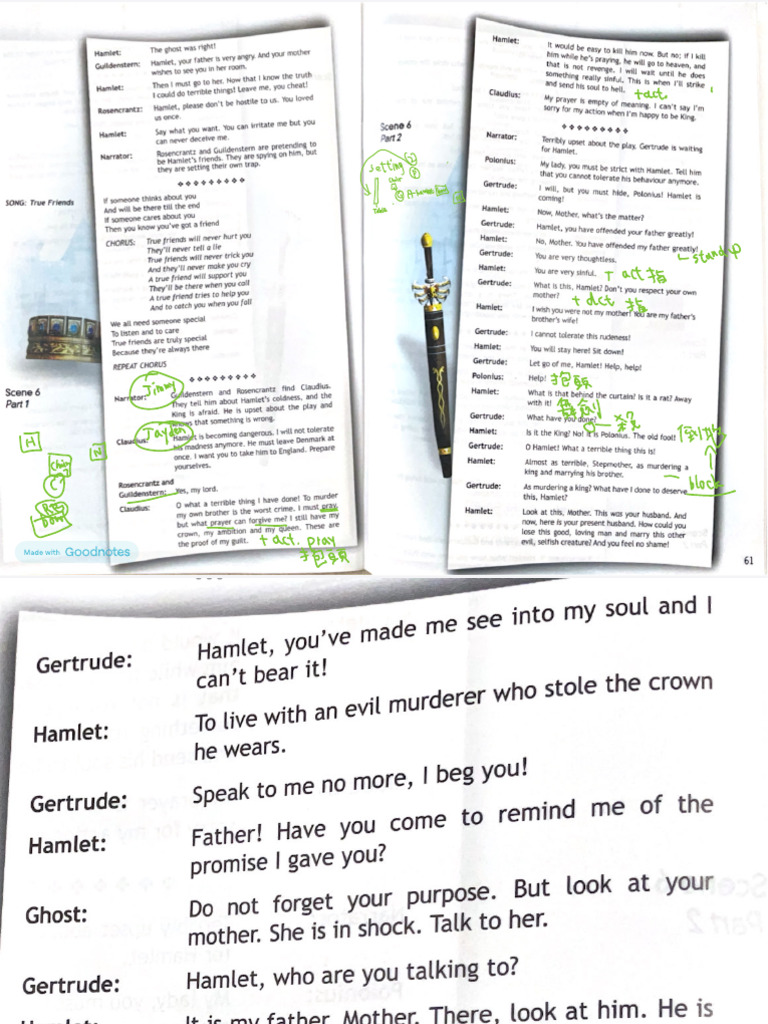 Hamlet: The ghost was right!
Guildenstern: Hamlet, your father is very angry. And your mother
wishes to see you in her room.
Hamlet: Then I must go to her. Now that I know the truth
I could do terrible things! Leave me, you cheat!
Rosencrantz: Hamlet, please don't be hostile to us. You loved
us once.
Hamlet: Say what you want. You can irritate me but you
can never deceive me.
Narrator: Rosencrantz and Guildenstern are pretending to
be Hamlet's friends. They are spying on him, but
they are setting their own trap.
SONG: True Friends
If someone thinks about you
And will be there till the end
If someone cares about you
Then you know you've got a friend
CHORUS: True friends will never hurt you
They'll never tell a lie
True friends will never trick you
And they'll never make you cry
A true friend will support you
They'll be there when you call
A true friend tries to help you
And to catch you when you fall
We all need someone special
To listen and to care
True friends are truly special
Because they're always there
REPEAT CHORUS
Scene 6
Part 1
Jimmy
Narrator: Guildenstern and Rosencrantz find Claudius.
They tell him about Hamlet's coldness, and the
King is afraid. He is upset about the play and
knows that something is wrong.
Jayden
Claudius: Hamlet is becoming dangerous. I will not tolerate
his madness anymore. He must leave Denmark at
once. I want you to take him to England. Prepare
yourselves.
H
N
C
Rosencrantz and
Guildenstern: Yes, my lord.
Claudius: O what a terrible thing I have done! To murder
my own brother is the worst crime. I must pray
but what prayer can forgive me? I still have my
crown, my ambition and my queen. These are
the proof of my guilt.
+ act. pray
抱頭
Made with Goodnotes
Hamlet: It would be easy to kill him now. But no; if I kill
him while he's praying, he will go to heaven, and
that is not revenge. I will wait until he does
something really sinful. This is when I'll strike
and send his soul to hell.
+act
Claudius: My prayer is empty of meaning. I can't say I'm
sorry for my action when I'm happy to be King.
Scene 6
Part 2
setting
Narrator: Terribly upset about the play. Gertrude is waiting
for Hamlet.
Polonius: My lady, you must be strict with Hamlet. Tell him
that you cannot tolerate his behaviour anymore.
Gertrude: I will, but you must hide, Polonius! Hamlet is
coming!
Hamlet: Now, Mother, what's the matter?
Gertrude: Hamlet, you have offended your father greatly!
Hamlet: No, Mother. You have offended my father greatly!
stand up
Gertrude: You are very thoughtless.
Hamlet: You are very sinful. + act 指
Gertrude: What is this, Hamlet? Don't you respect your own
mother? + act 指
Hamlet: I wish you were not my mother! You are my father's
brother's wife!
Gertrude: I cannot tolerate this rudeness!
Hamlet: You will stay here! Sit down!
Gertrude: Let go of me, Hamlet! Help, help!
Polonius: Help! 抱頭
Hamlet: What is that behind the curtain? Is it a rat? Away
with it!
Gertrude: What have you done?
Hamlet: Is it the King? No! It is Polonius. The old fool! 倒地
Gertrude: O Hamlet! What a terrible thing this is!
Hamlet: Almost as terrible, Stepmother, as murdering a
king and marrying his brother.
block
Gertrude: As murdering a king? What have I done to deserve
this, Hamlet?
Hamlet: Look at this, Mother. This was your husband. And
now, here is your present husband. How could you
lose this good, loving man and marry this other
evil, selfish creature? And you feel no shame!
61
Gertrude: Hamlet, you've made me see into my soul and I
can't bear it!
Hamlet: To live with an evil murderer who stole the crown
he wears.
Gertrude: Speak to me no more, I beg you!
Hamlet: Father! Have you come to remind me of the
promise I gave you?
Ghost: Do not forget your purpose. But look at your
mother. She is in shock. Talk to her.
Gertrude: Hamlet, who are you talking to?
Hamlet: It is my father, Mother. There, look at him. He is